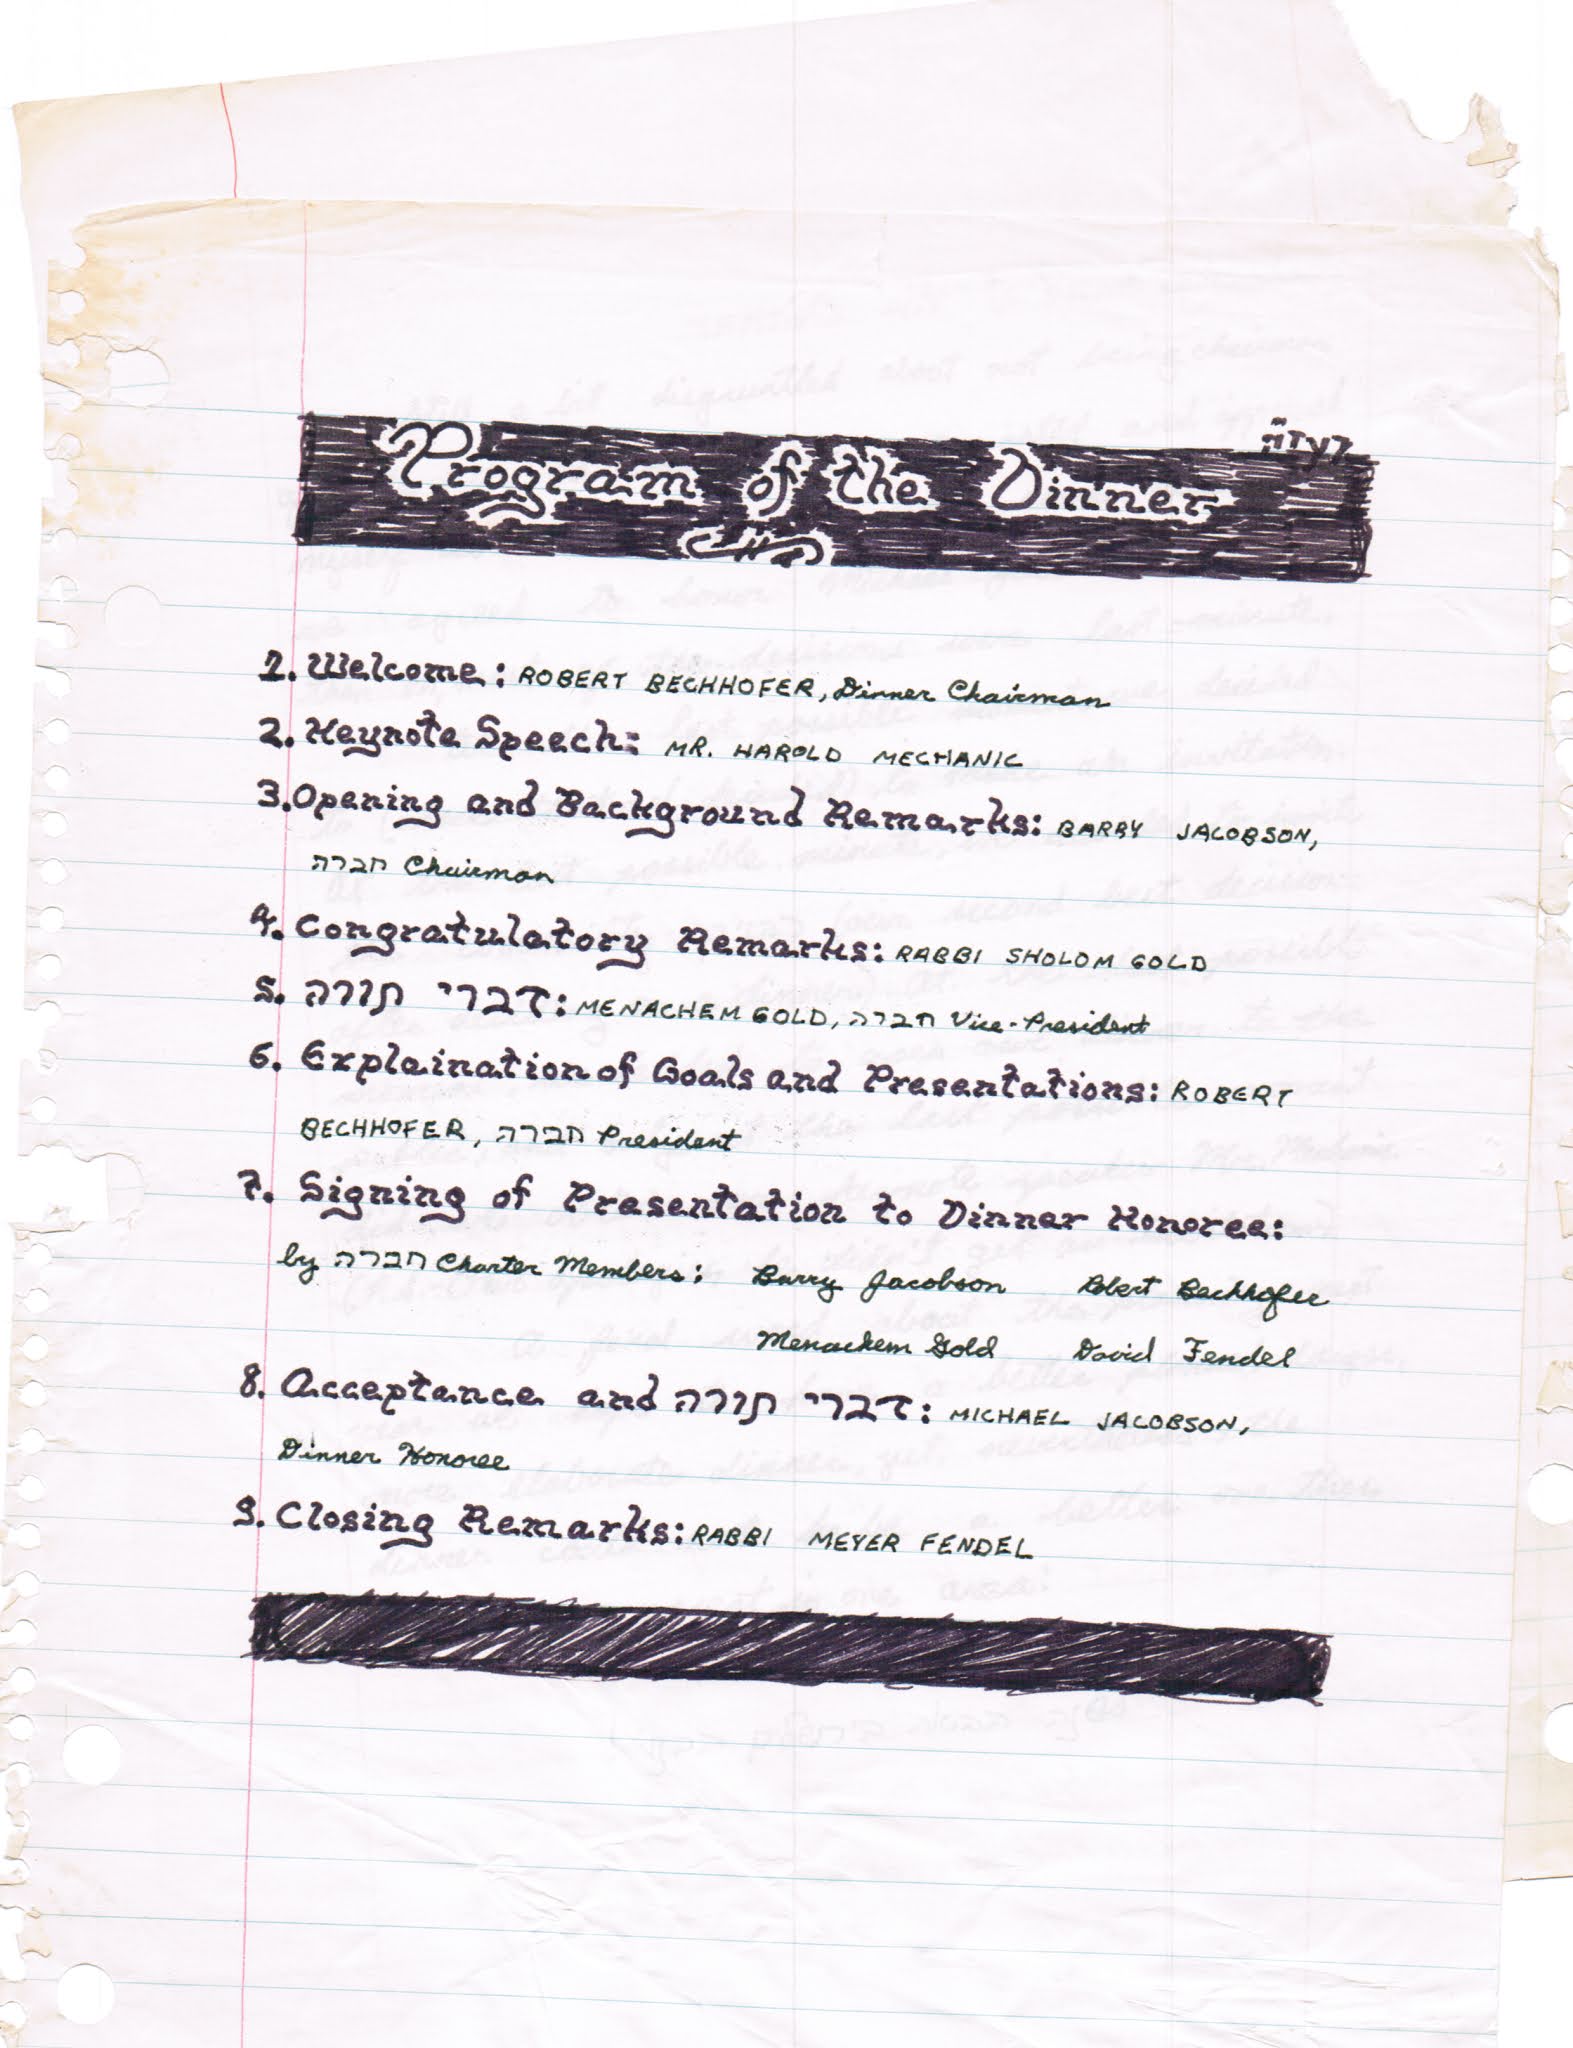 בעז״ה
Program of the Dinner
1. Welcome: ROBERT BECHHOFER, Dinner Chairman
2. Keynote Speech: MR. HAROLD MECHANIC
3. Opening and Background Remarks: BARRY JACOBSON,
חברה Chairman
4. Congratulatory Remarks: RABBI SHOLOM GOLD
5. דברי תורה: MENACHEM GOLD, חברה Vice-President
6. Explaination of Goals and Presentations: ROBERT
BECHHOFER, חברה President
7. Signing of Presentation to Dinner Honoree:
by חברה Charter Members: Barry Jacobson Robert Bechhofer
Menachem Gold David Fendel
8. Acceptance and דברי תורה: MICHAEL JACOBSON,
Dinner Honoree
9. Closing Remarks: RABBI MEYER FENDEL